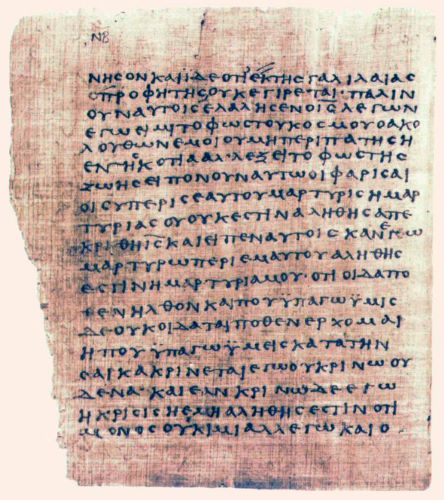 ΝΒ
ΝΗϹΟΝΚΑΙΪΔΕΟΤΙΕΚΤΗϹΓΑΛΙΛΑΙΑϹ
ΟΠΡΟΦΗΤΗϹΟΥΚΕΓΙΡΕΤΑΙ·ΠΑΛΙΝ
ΟΥΝΑΥΤΟΙϹΕΛΑΛΗϹΕΝΟΙϹΛΕΓΩΝ
ΕΓΩΕΙΜΙΤΟΦΩϹΤΟΥΚΟϹΜΟΥΟΑΚΟ
ΛΟΥΘΩΝΕΜΟΙΟΥΜΗΠΕΡΙΠΑΤΗϹΗ
ΕΝΤΗϹΚΟΤΙΑΑΛΛΕΞΕΙΤΟΦΩϹΤΗϹ
ΖΩΗϹΕΙΠΟΝΟΥΝΑΥΤΩΟΙΦΑΡΙϹΑΙ
ΟΙϹΥΠΕΡΙϹΕΑΥΤΟΥΜΑΡΤΥΡΙϹΗΜΑΡ
ΤΥΡΙΑϹΟΥΟΥΚΕϹΤΙΝΑΛΗΘΗϹΑΠΕ
ΚΡΙΘΗΙϹΚΑΙΕΙΠΕΝΑΥΤΟΙϹΚΑΝΕΓΩ
ΜΑΡΤΥΡΩΠΕΡΙΕΜΑΥΤΟΥΑΛΗΘΗϹ
ΕϹΤΙΝΗΜΑΡΤΥΡΙΑΜΟΥ·ΟΤΙΟΙΔΑΠΟ
ΘΕΝΗΛΘΟΝΚΑΙΠΟΥΫΠΑΓΩΫΜΙϹ
ΔΕΟΥΚΟΙΔΑΤΑΙΠΟΘΕΝΕΡΧΟΜΑΙ
ΗΠΟΥΫΠΑΓΩΫΜΕΙϹΚΑΤΑΤΗΝ
ϹΑΡΚΑΚΡΙΝΕΤΑΙΕΓΩΟΥΚΡΙΝΩΟΥ
ΔΕΝΑ·ΚΑΙΕΑΝΚΡΙΝΩΔΕΕΓΩ
ΗΚΡΙϹΙϹΗΕΜΗΑΛΗΘΗϹΕϹΤΙΝΟΤΙ
ΜΟΝΟϹΟΥΚΙΜΙΑΛΛΕΓΩΚΑΙΟ